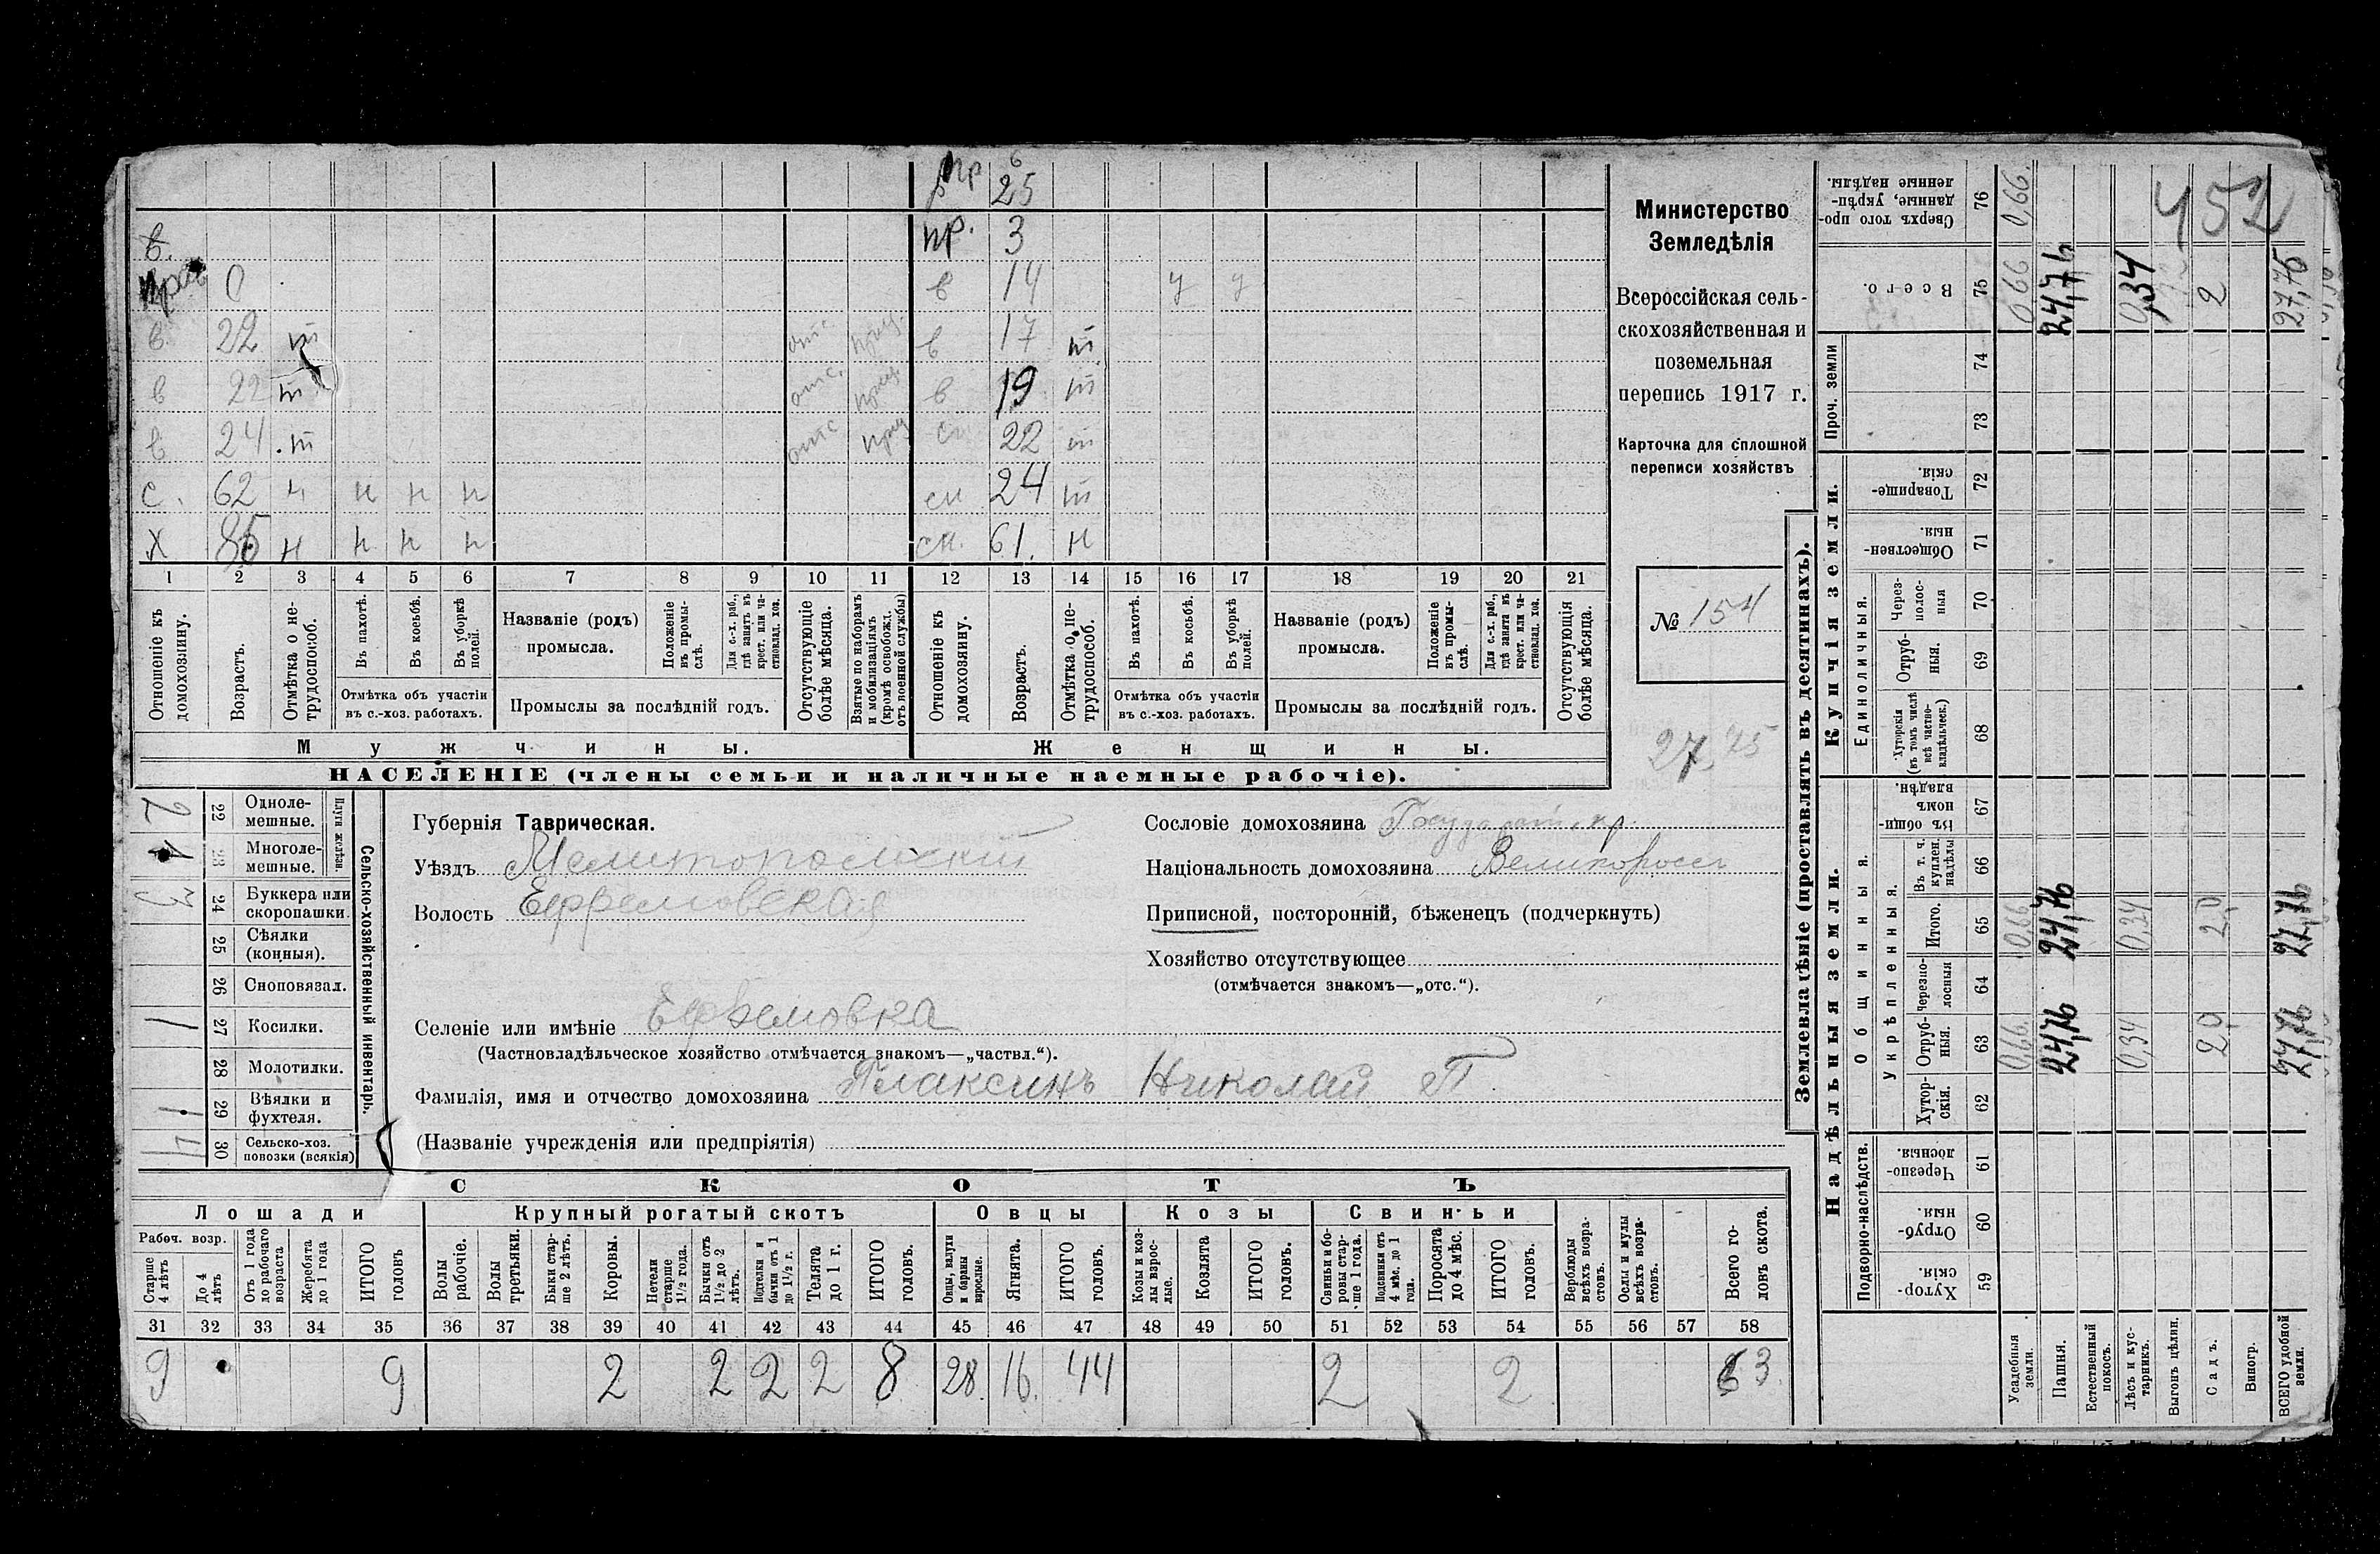 пр 6
25
в. пр. 3
прав 0 в 14 у у
в 22 т отс. в 17 т
в 22 т отс. в 19 т
в 24 т отс с 22 т
с. 62 н н н н сн 24 т
Х 85 н н н н сн. 61. н
1 2 3 4 5 6 7 8 9 10 11 12 13 14 15 16 17 18 19 20 21
Отношеніе къ домохозяину.
Возрастъ.
Отмѣтка о нетрудоспособ.
Въ пахотѣ.
Въ косьбѣ.
Въ уборкѣ полей.
Отмѣтка объ участіи
въ с.-хоз. работахъ.
Названіе (родъ)
промысла.
Положеніе въ промыслѣ.
Для с.-х. раб., гдѣ занятъ въ крест. или частновлад. хоз.
Промыслы за послѣдній годъ.
Отсутствующіе болѣе мѣсяца.
Взятые по наборамъ и мобилизаціямъ (кромѣ освобожд. отъ военной службы)
Отношеніе къ домохозяину.
Возрастъ.
Отмѣтка о нетрудоспособ.
Въ пахотѣ.
Въ косьбѣ.
Въ уборкѣ полей.
Отмѣтка объ участіи
въ с.-хоз. работахъ.
Названіе (родъ)
промысла.
Положеніе въ промыслѣ.
Для с.-х. раб., гдѣ занята въ крест. или частновлад. хоз.
Промыслы за послѣдній годъ.
Отсутствующія болѣе мѣсяца.
Мужчины. Женщины.
НАСЕЛЕНІЕ (члены семьи и наличные наемные рабочіе).
Министерство
Земледѣлія
Всероссійская сель-
скохозяйственная и
поземельная
перепись 1917 г.
Карточка для сплошной
переписи хозяйствъ
№ 154
27,25
Сельско-хозяйственный инвентарь.
Плуги желѣзн.
2 22 Одноле-
мешные.
1 23 Многоле-
мешные.
3 24 Буккера или
скоропашки.
25 Сѣялки
(конныя).
26 Сноповязал.
1 27 Косилки.
28 Молотилки.
1 29 Вѣялки и
фухтеля.
4 30 Сельско-хоз.
повозки (всякія)
Губернія Таврическая.
Уѣздъ Мелитопольскій
Волость Ефремовская
Селеніе или имѣніе Ефремовка
(Частновладѣльческое хозяйство отмѣчается знакомъ—„частвл.“).
Фамилія, имя и отчество домохозяина Плаксинъ Николай П
(Названіе учрежденія или предпріятія)
Сословіе домохозяина Государст. кр.
Національность домохозяина Великороссъ
Приписной, посторонній, бѣженецъ (подчеркнуть)
Хозяйство отсутствующее
(отмѣчается знакомъ—„отс.“).
СКОТЪ
Лошади Крупный рогатый скотъ Овцы Козы Свиньи
Рабоч. возр.
Старше 4 лѣтъ
До 4 лѣтъ
Отъ 1 года до рабочаго возраста
Жеребята до 1 года
ИТОГО головъ
Волы рабочіе.
Волы третьяки.
Быки старше 2 лѣтъ.
Коровы.
Нетели старше 1 1/2 года.
Бычки отъ 1 1/2 до 2 лѣтъ.
Подтелки и бычки отъ 1 до 1 1/2 г.
Телята до 1 г.
ИТОГО головъ.
Овцы, валухи и бараны взрослые.
Ягнята.
ИТОГО головъ.
Козы и козлы взрослые.
Козлята
ИТОГО головъ.
Свиньи и боровы старше 1 года.
Подсвинки отъ 4 мѣс. до 1 года.
Поросята до 4 мѣс.
ИТОГО головъ.
Верблюды всѣхъ возрастовъ.
Ослы и мулы всѣхъ возрастовъ.
Всего головъ скота.
31 32 33 34 35 36 37 38 39 40 41 42 43 44 45 46 47 48 49 50 51 52 53 54 55 56 57 58
9 9 2 2 2 2 8 28 16 44 2 2 63
Землевладѣніе (проставлять въ десятинахъ).
Надѣльныя земли. Купчія земли. Проч. земли
Подворно-наслѣдств. Общинныя. Единоличныя.
Укрѣпленныя.
Хуторскія. 59
Отрубныя. 60
Черезполосныя. 61
Хуторскія. 62
Отрубныя. 63
Черезполосныя 64
Итого. 65
Въ т. ч. куплен. надѣлы 66
Въ общинномъ владѣн. 67
Хуторскія (въ томъ числѣ всѣ частновладѣльческ.) 68
Отрубныя. 69
Черезполосныя 70
Общественныя. 71
Товарищескія. 72
73
74
Всего. 75
Сверхъ того проданные, укрѣпленные надѣлы. 76
Усадебныя земли. 0,66 0,66 0,66 0,66
Пашня. 24,76 24,76 24,76
Естественный покосъ.
Лѣсъ и кустарникъ. 0,34 0,34 0,34
Выгонъ цѣлин.
Садъ. 2,0 2,0 2
Виногр.
ВСЕГО удобной земли. 27,76 27,76 27,76
452